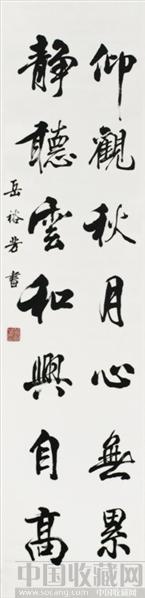 仰觀秋月心無累
靜聽雲和興自高
岳裕芳書
中国收藏网
www.socang.com
中国收藏网